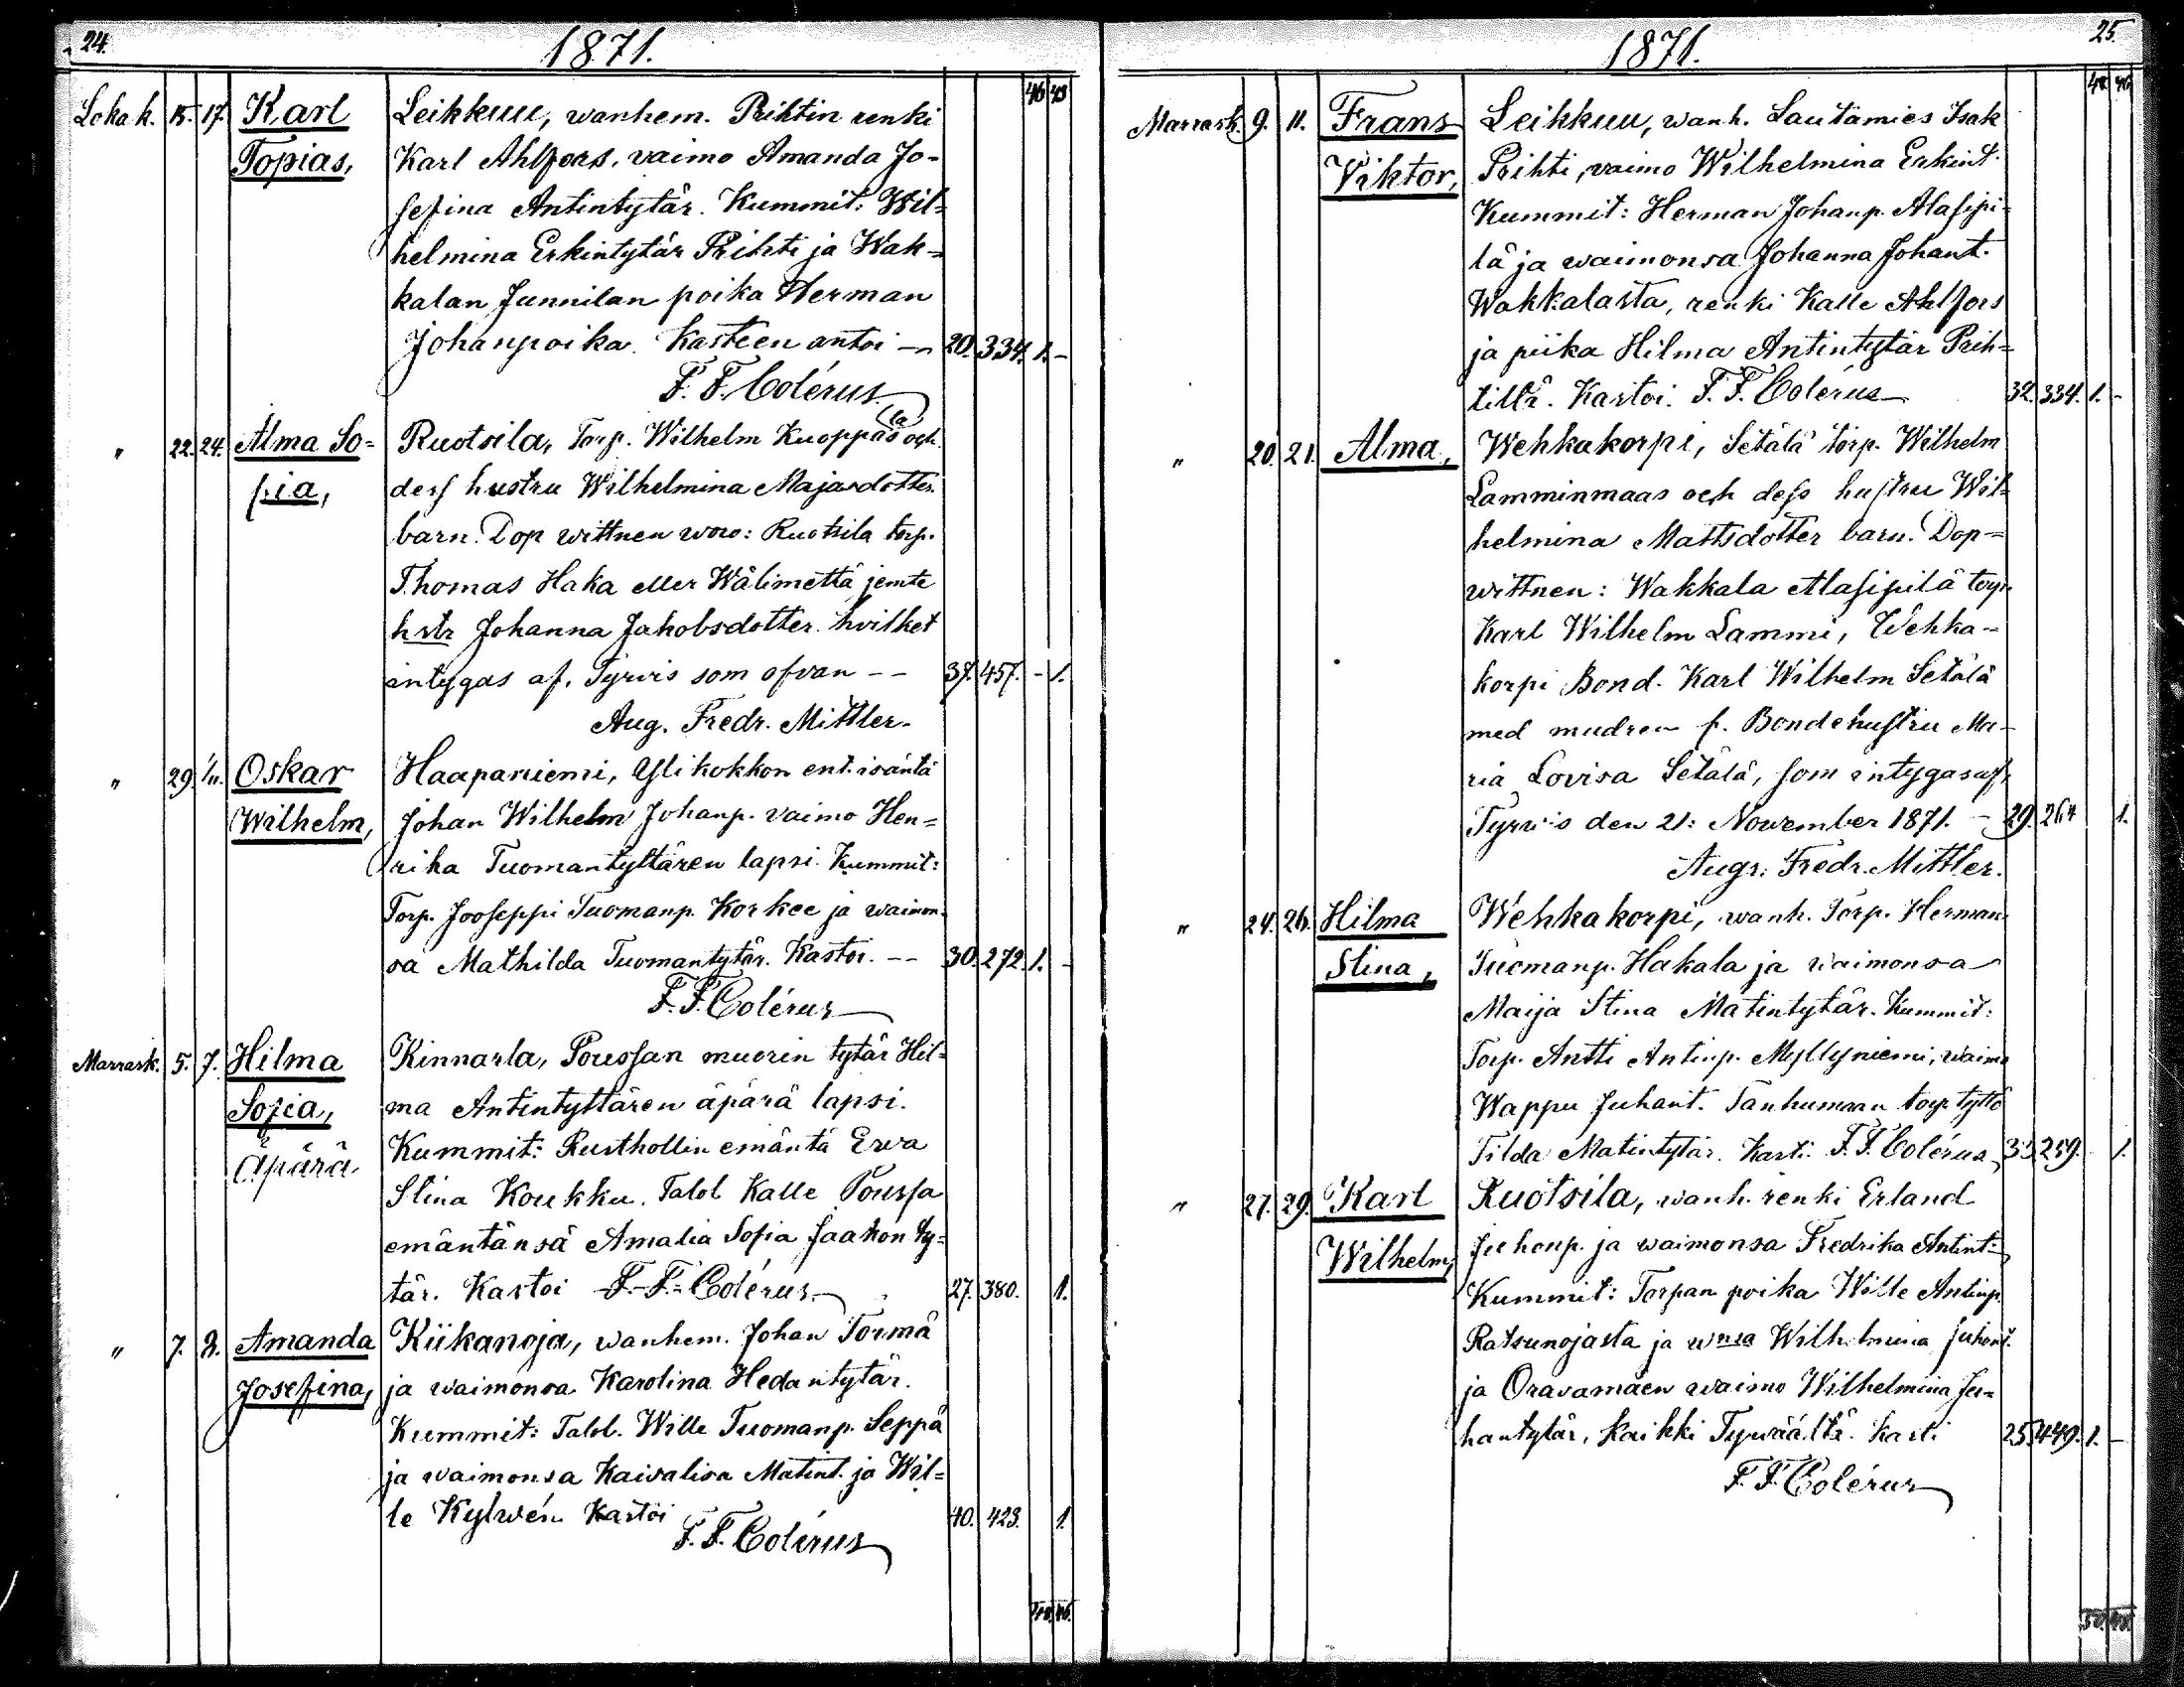 24.
1871.
46 43
Lokak. 15. 17. Karl Leikkuu, wanhem. Prihtin renki
Topias, Karl Ahlfors, vaimo Amanda Jo-
sefina Antintytär. Kummit: Wil=
helmina Erkintytär Prihti ja Wak=
kalan Junnilan poika Herman
Johanpoika. Kasteen antoi — 20. 334. 1. -
F. F. Colérus
" 22. 24. Alma So= Ruotsila, Torp. Wilhelm Kuoppas (la) och
fia, dess hustru Wilhelmina Majasdotter
barn. Dop wittnen woro: Ruotsila torp.
Thomas Haka eller Wälimettä jemte
hstr Johanna Jakobsdotter. hvilket
intygas af. Tyrvis som ofvan -- 37. 457. - 1.
Aug. Fredr. Mittler.
" 29. 1/11. Oskar Haapaniemi, Ylikokkon ent. isäntä
Wilhelm, Johan Wilhelm Johanp. vaimo Hen=
rika Tuomantyttären lapsi. Kummit:
Torp. Jooseppi Tuomanp. Korkee ja waimon-
sa Mathilda Tuomantytär. Kastoi. -- 30. 272. 1. -
F. F. Colérus
Marrask. 5. 7. Hilma Kinnarla, Poussan muorin tytär Hil=
Sofia, ma Antintyttären äpärä lapsi.
Äpärä Kummit: Rusthollin emäntä Erva
Stina Koukku. Talol. Kalle Poussa
emäntänsä Amalia Sofia Jaakon ty=
tär. Kastoi F. F. Colérus. 27. 380. 1.
" 7. 8. Amanda Kiikanoja, wanhem. Johan Tormä
Josefina, ja waimonsa Karolina Hedantytär.
Kummit: Talol. Wille Tuomanp. Seppä
ja waimonsa Kaivalisa Matint. ja Wil=
le Kylwén. Kastoi 40. 423. 1.
F. F. Colérus
48. 46.
25.
1871.
48. 46
Marrask. 9. 11. Frans Leikkuu, wanh. Lautamies Isak
Viktor, Prihti, vaimo Wilhelmina Erkint.
Kummit: Herman Johanp. Alasipi-
lä ja waimonsa Johanna Johant.
Wakkalasta, renki Kalle Ahlfors
ja piika Hilma Antintytär Prih=
tiltä. Kastoi. F. F. Colérus 32. 334. 1. -
" 20. 21. Alma, Wehkakorpi, Setälä torp. Wilhelm
Lamminmaas och dess hustru Wil=
helmina Mattsdotter barn. Dop=
wittnen: Wakkala Alasipilä torp.
Karl Wilhelm Lammi, Wehka-
korpi Bond. Karl Wilhelm Setälä
med mudren f. Bondehustru Ma-
ria Lovisa Setälä, som intygas af
Tyrvis den 21: November 1871. - 29. 264 1.
Augs. Fredr. Mittler.
" 24. 26. Hilma Wehkakorpi, wanh. Torp. Herman
Stina, Tuomanp. Hakala ja waimonsa
Maija Stina Matintytär. Kummit:
Torp. Antti Antinp. Myllyniemi, waimo
Wappu Juhant. Tanhumaan torp. tyttö
Tilda Matintytär. Kasti. F. F. Colérus 33. 259. 1.
" 27. 29. Karl Ruotsila, wanh. renki Erland
Wilhelm, Juhonp. ja waimonsa Fredrika Antint:
Kummit: Torpan poika Wille Antinp.
Ratsunojasta ja wnsa Wilhelmina Juhont.
ja Oravamäen waimo Wilhelmina Ju=
hantytär, kaikki Tyrväältä. Kasti 25. 449. 1. -
F. F. Colérus
50. 48.